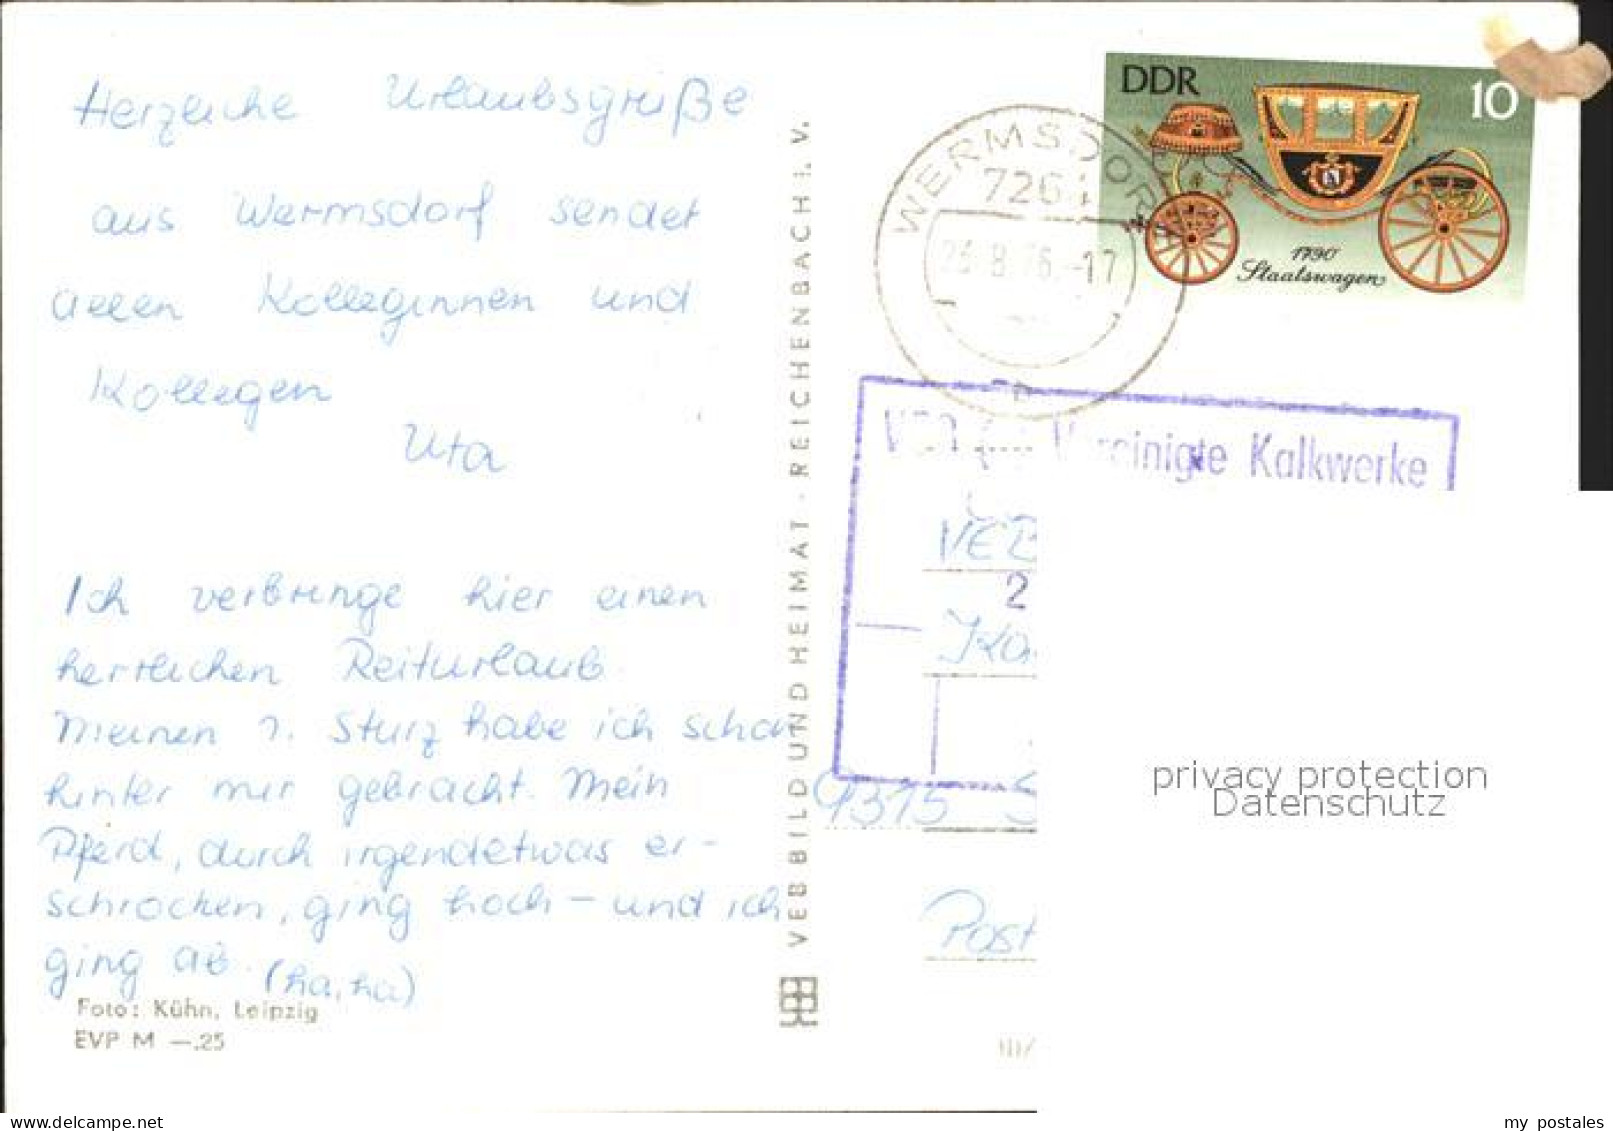 Herzliche Urlaubsgrüße
aus Wermsdorf sendet
allen Kolleginnen und
Kollegen
Uta
Ich verbringe hier einen
herrlichen Reiturlaub.
Meinen 1. Sturz habe ich schon
hinter mir gebracht. Mein
Pferd, durch irgendetwas er-
schrocken, ging hoch – und ich
ging ab. (ha, ha)
Foto: Kühn, Leipzig
EVP M —.25
VEB BILD UND HEIMAT · REICHENBACH I. V.
WERMSDORF
726
8.76.-17
DDR
10
1790
Staatswagen
Vereinigte Kalkwerke
VEB
2
9375 S
Post
III/
privacy protection
Datenschutz
my postales
www.delcampe.net